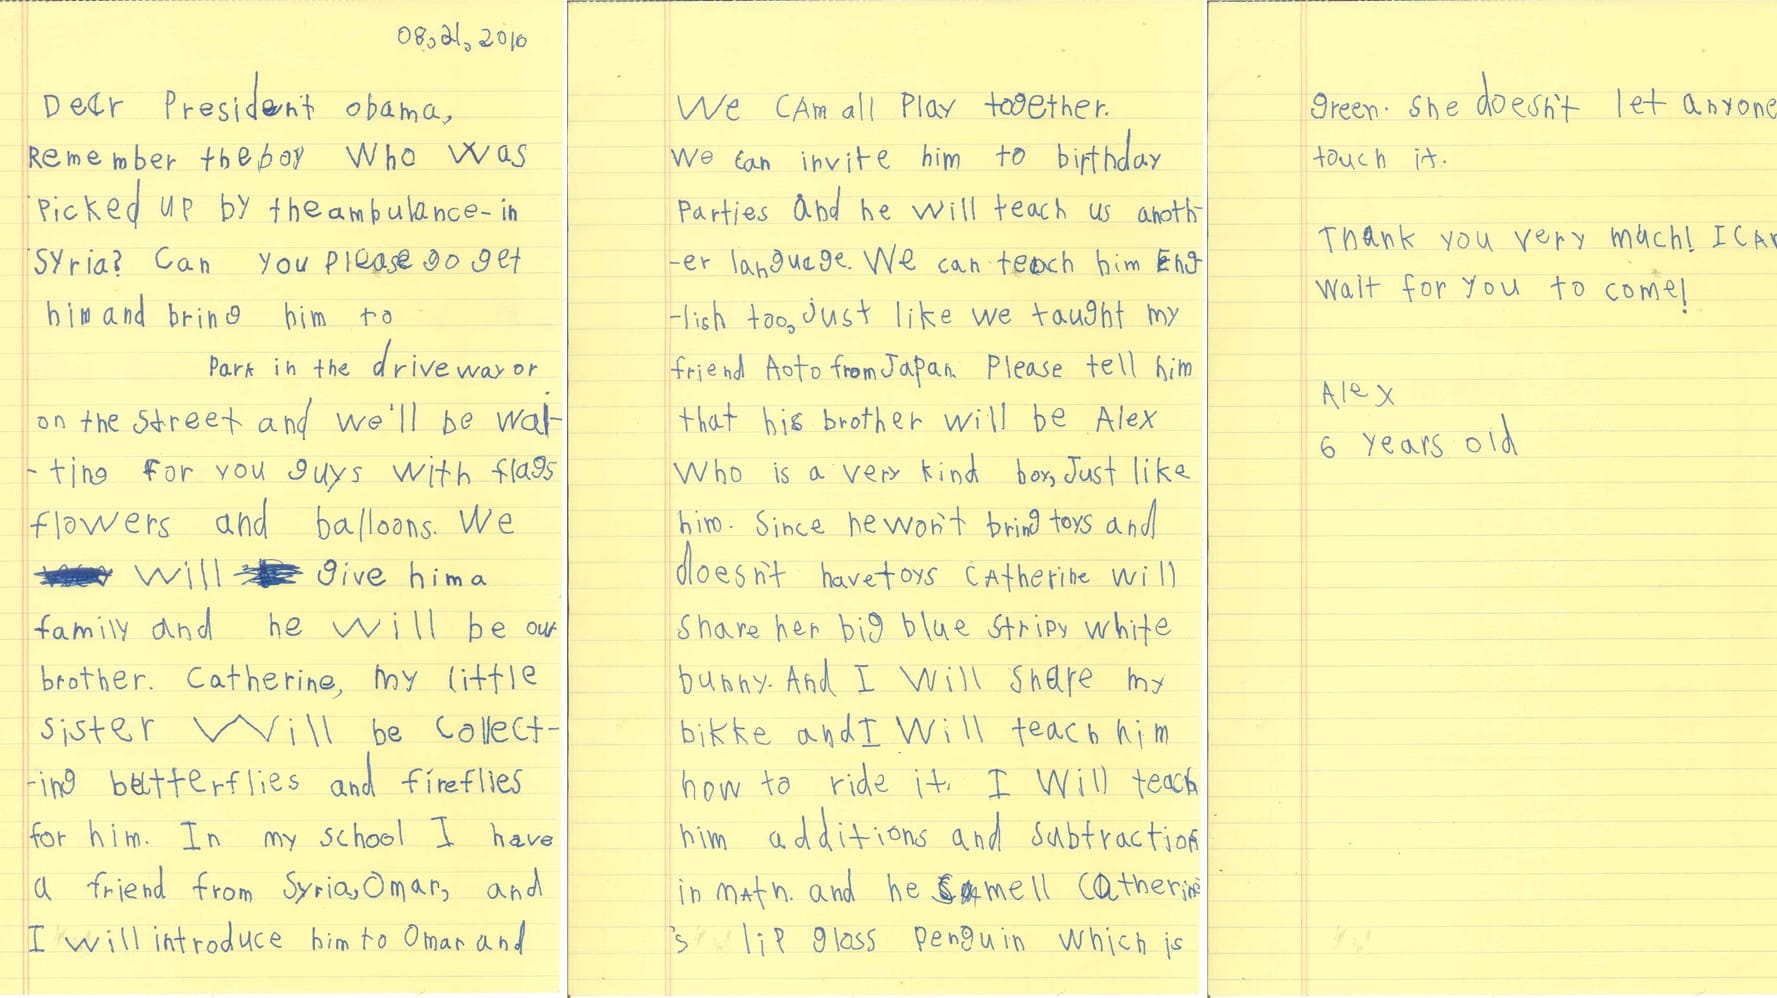 08,21,2010
Dear President obama,
Remember the boy Who was
Picked up by the ambulance-in
Syria? Can you Please go get
him and bring him to
Park in the driveway or
on the street and we'll be wai-
-ting for you guys with flags
flowers and balloons. We
will give him a
family and he will be our
brother. Catherine, my little
sister will be collect-
-ing butterflies and fireflies
for him. In my school I have
a friend from Syria, Omar, and
I will introduce him to Omar and
We CAm all Play together.
We can invite him to birthday
Parties and he will teach us anoth-
-er language. We can teach him Eng
-lish too, just like we taught my
friend Aoto from Japan. Please tell him
that his brother will be Alex
Who is a very kind boy, Just like
him. Since he won't bring toys and
doesn't have toys CAtherine will
share her big blue stripy white
bunny. And I will share my
bikke and I will teach him
how to ride it. I will teach
him additions and subtraction
in mAth. and he smell Catherine
's lip gloss penguin which is
green. She doesn't let anyone
touch it.
Thank you very much! I CAn
Wait for you to come!
Alex
6 years old